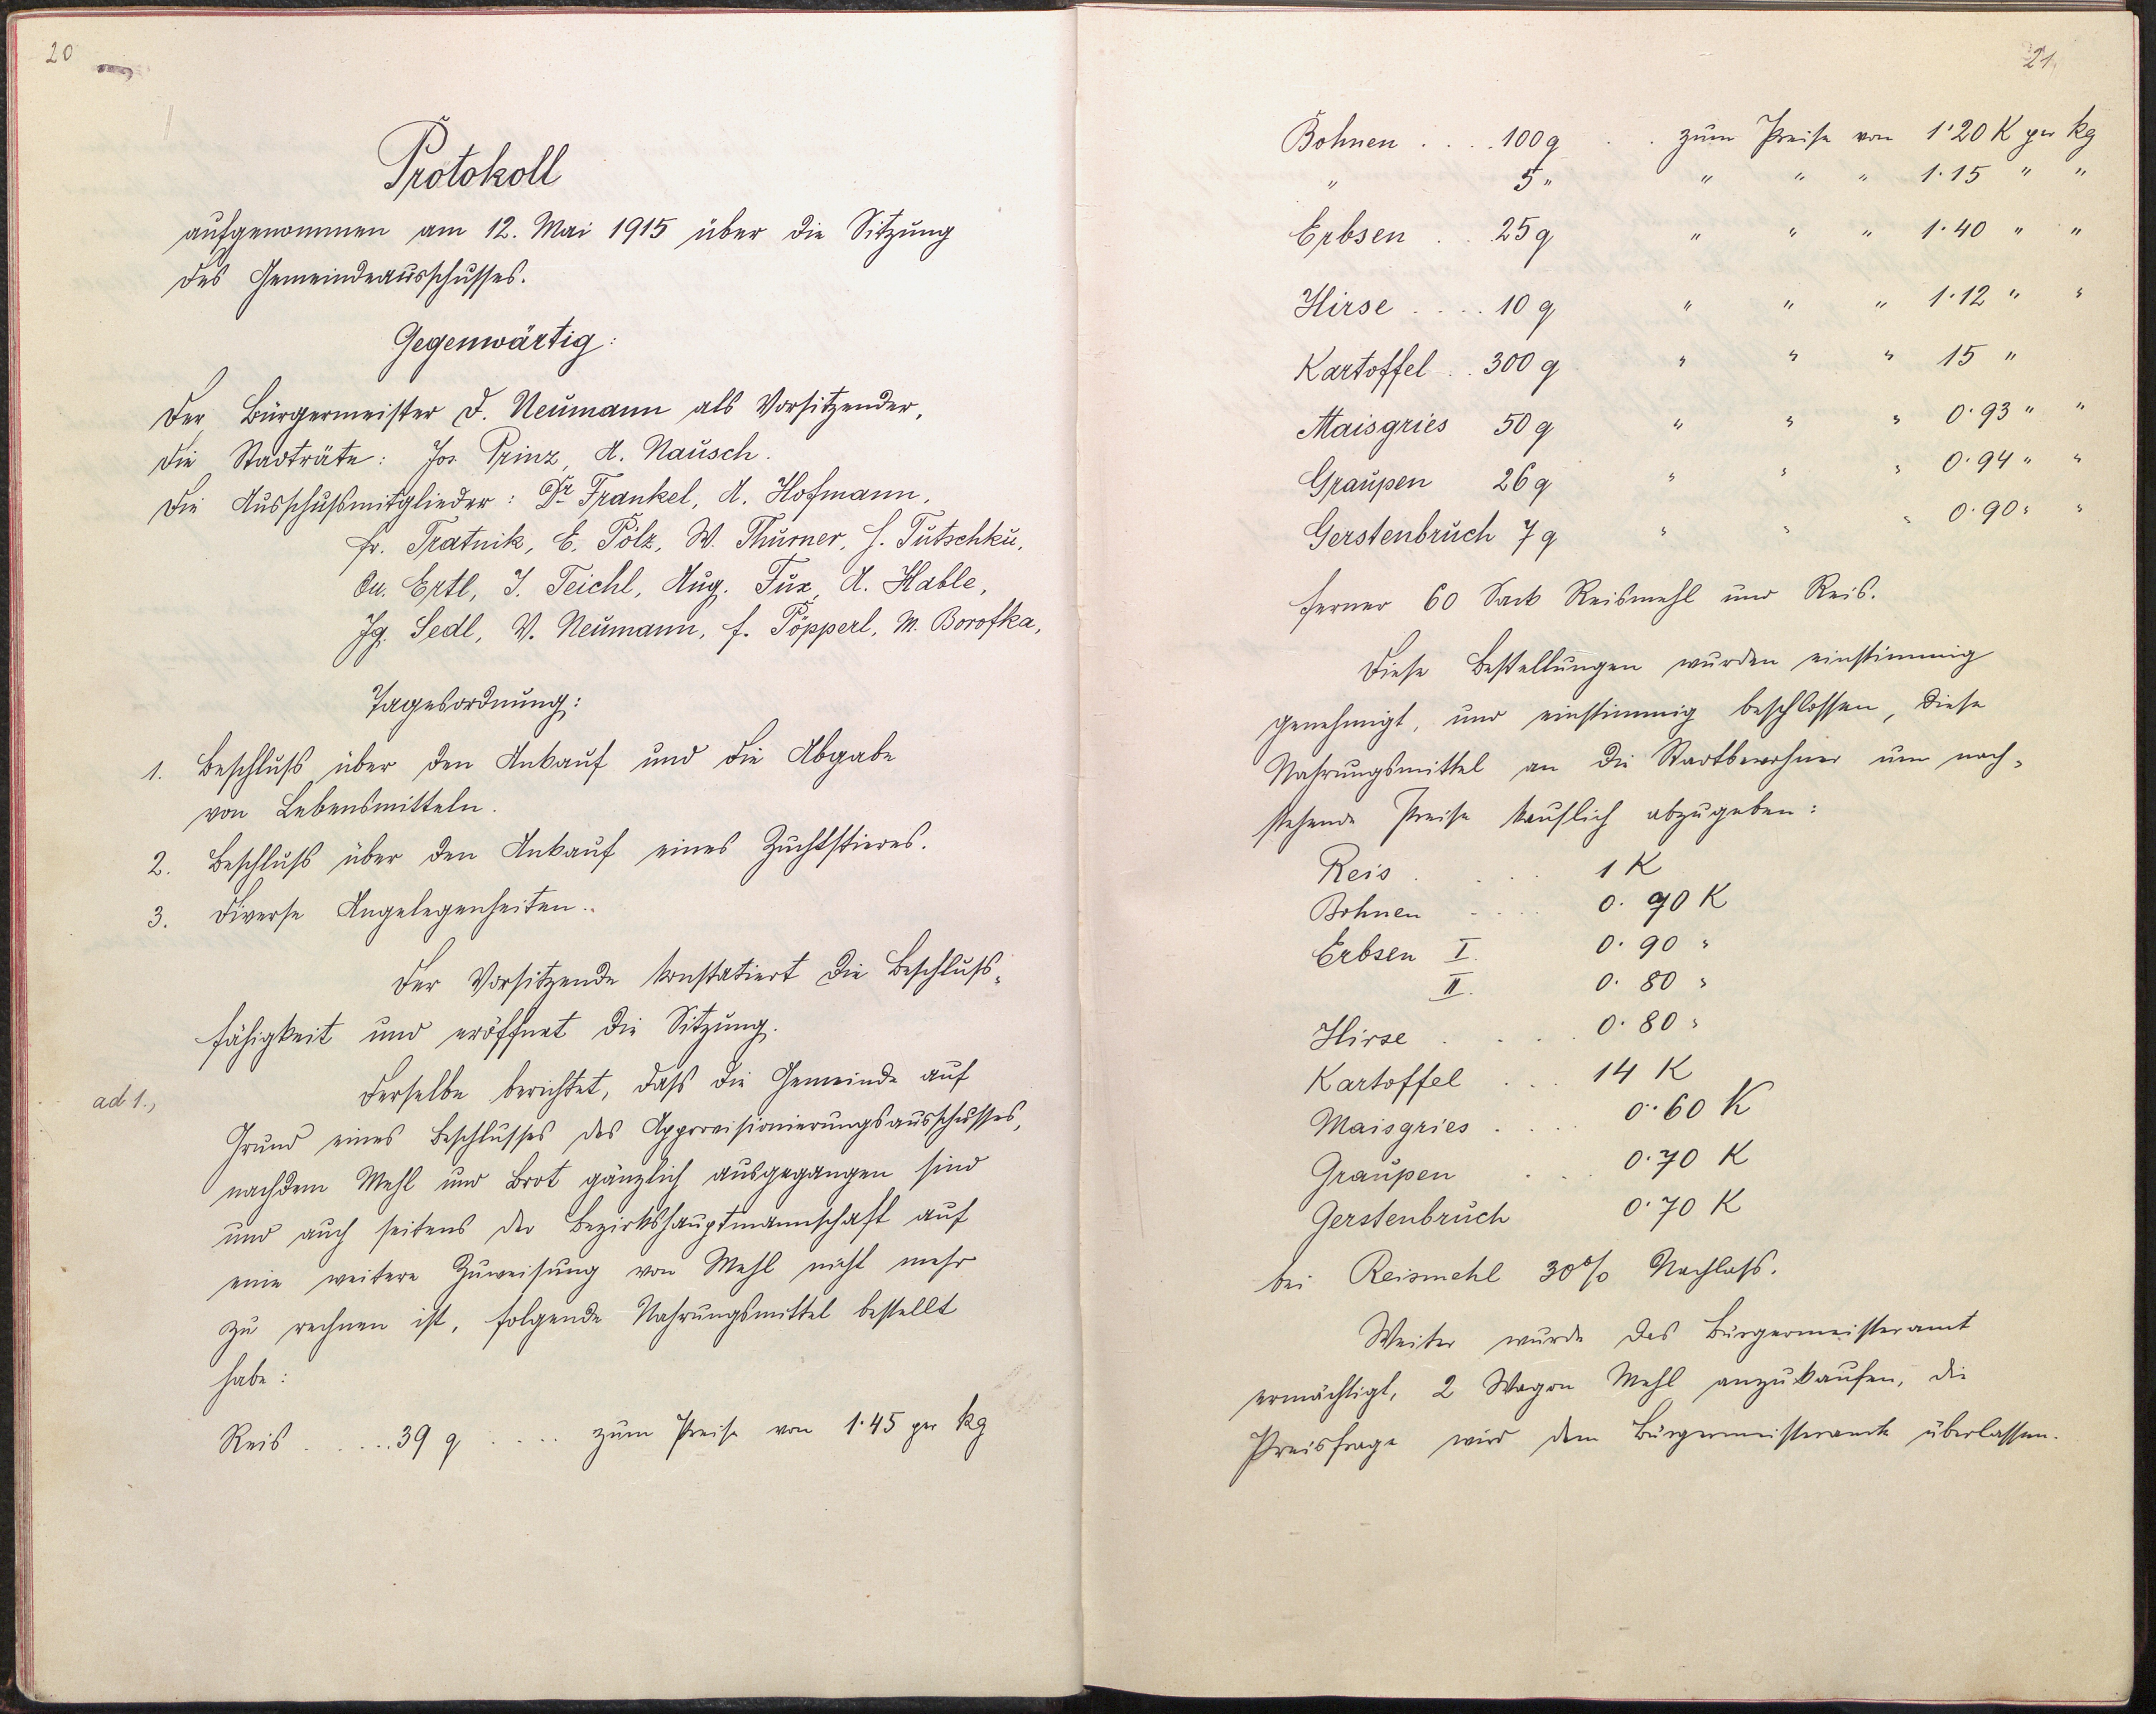 20
Protokoll
aufgenommen am 12. Mai 1915 über die Sitzung
des Gemeindeausschusses.
Gegenwärtig:
Der Bürgermeister F. Neumann als Vorsitzender,
die Stadträte: Jos. Prinz, A. Nausch.
Die Ausschußmitglieder: Dr Frankel, A. Hofmann,
Fr. Tratnik, E. Pölz, W. Thurner, H. Tutschku,
Ertl, J. Teichl, Aug. Fux, A. Hable,
Jg. Sedl, V. Neumann, F. Pöpperl, M. Borofka,
Tagesordnung:
1. Beschluß über den Ankauf und die Abgabe
von Lebensmitteln.
2. Beschluß über den Ankauf eines Zuchtstieres.
3. Diverse Angelegenheiten.
Der Vorsitzende konstatiert die Beschluß-
fähigkeit und eröffnet die Sitzung.
ad 1., Derselbe berichtet, daß die Gemeinde auf
Grund eines Beschlusses des Approvisionierungsausschusses,
nachdem Mehl und Brot gänzlich ausgegangen sind
und auch seitens der Bezirkshauptmannschaft auf
eine weitere Zuweisung von Mehl nicht mehr
zu rechnen ist, folgende Nahrungsmittel bestellt
habe:
Reis ..... 39 q .... zum Preise von 1·45 per kg
21
Bohnen .... 100 q .. zum Preise von 1·20 K per kg
" 5 " " " " 1·15 " "
Erbsen .. 25 q " " " 1·40 " "
Hirse .... 10 q " " " 1·12 " "
Kartoffel .. 300 q " " " 15 "
Maisgries 50 q " " " 0·93 " "
Graupen 26 q " " " 0·94 " "
Gerstenbruch 7 q " " " 0·90 " "
ferner 60 Sack Reismehl und Reis.
Diese Bestellungen wurden einstimmig
genehmigt, und einstimmig beschlossen, diese
Nahrungsmittel an die Stadtbewohner um nach-
stehende Preise käuflich abzugeben:
Reis .... 1 K
Bohnen .... 0·90 K
Erbsen I. 0·90 "
II. 0·80 "
Hirse .... 0·80 "
Kartoffel ... 14 K
Maisgries .... 0·60 K
Graupen .. 0·70 K
Gerstenbruch 0·70 K
bei Reismehl 30% Nachlaß.
Weiter wurde das Bürgermeisteramt
ermächtigt, 2 Wagon Mehl anzukaufen, die
Preisfrage wird dem Bürgermeisteramte überlassen.